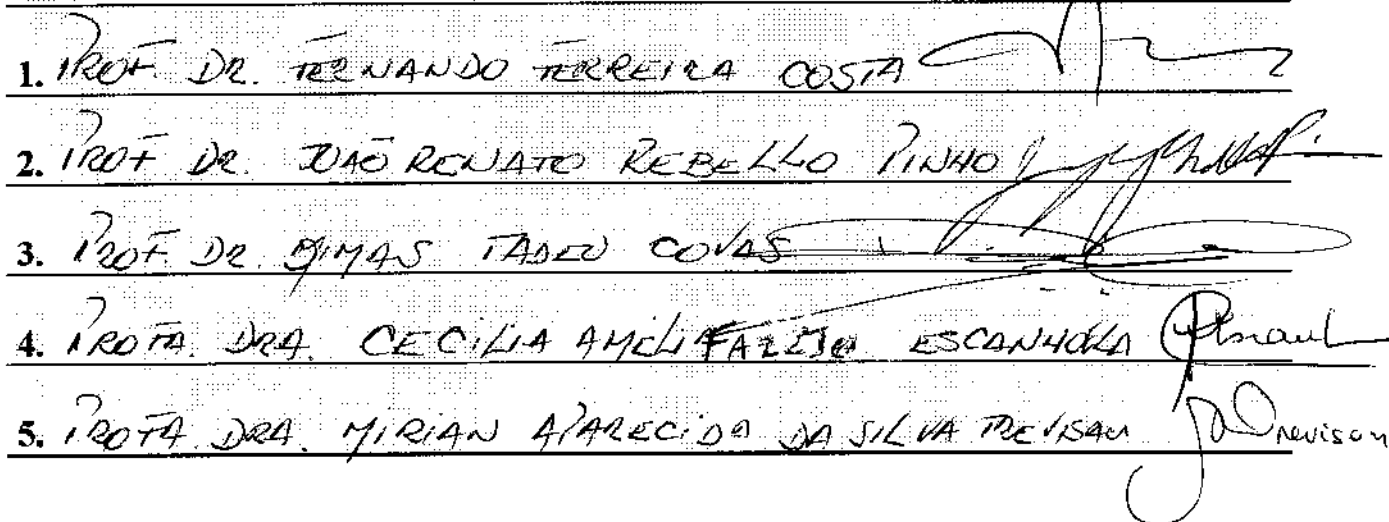 1. PROF. DR. FERNANDO FERREIRA COSTA
2. PROF DR. JOÃO RENATO REBELLO PINHO
3. PROF DR. DIMAS TADEU COVAS
4. PROFA. DRA. CECILIA AMELIA FAZZIO ESCANHOELA
5. PROFA DRA. MIRIAN APARECIDA DA SILVA TREVISAN Trevisan